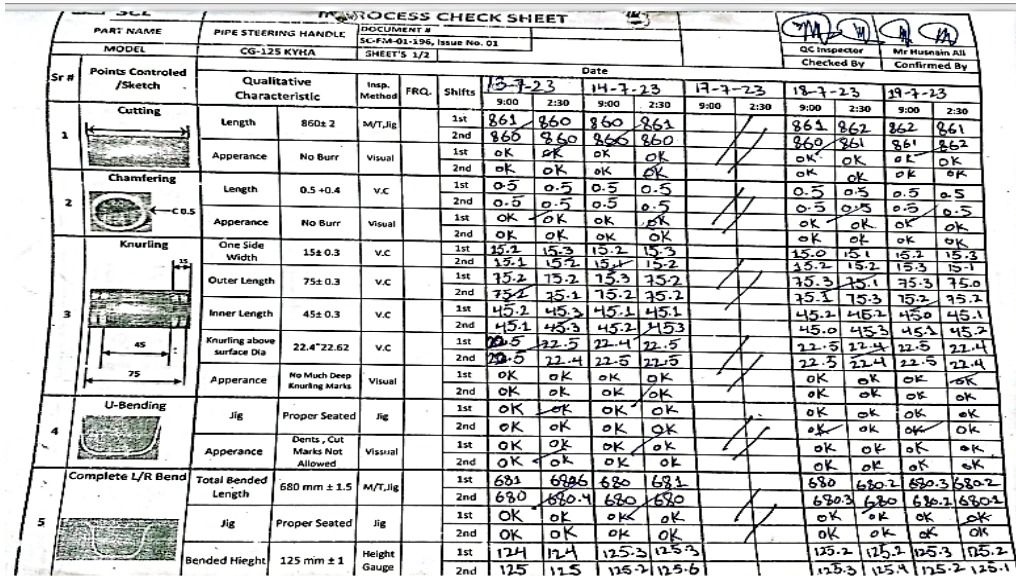 PROCESS CHECK SHEET
PART NAME PIPE STEERING HANDLE DOCUMENT #
SC-FM-01-196, Issue No. 01
MODEL CG-125 KYHA SHEET'S 1/2
QC Inspector Mr Husnain Ali
Checked By Confirmed By
Sr # Points Controled /Sketch Qualitative Characteristic Insp. Method FRQ. Shifts Date
13-7-23 14-7-23 17-7-23 18-7-23 19-7-23
9:00 2:30 9:00 2:30 9:00 2:30 9:00 2:30 9:00 2:30
1 Cutting
Length 860± 2 M/T,Jig 1st 861 860 860 861 861 862 862 861
2nd 860 860 860 860 860 861 861 862
Apperance No Burr Visual 1st OK OK OK OK OK OK OK OK
2nd OK OK OK OK OK OK OK OK
2 Chamfering
C 0.5
Length 0.5 +0.4 V.C 1st 0.5 0.5 0.5 0.5 0.5 0.5 0.5 0.5
2nd 0.5 0.5 0.5 0.5 0.5 0.5 0.5 0.5
Apperance No Burr Visual 1st OK OK OK OK OK OK OK OK
2nd OK OK OK OK OK OK OK OK
3 Knurling
15
45
75
One Side Width 15± 0.3 V.C 1st 15.2 15.3 15.2 15.3 15.0 15.1 15.2 15.3
2nd 15.1 15.2 15.1 15.2 15.2 15.2 15.3 15.1
Outer Length 75± 0.3 V.C 1st 75.2 75.2 75.3 75.2 75.3 75.1 75.3 75.0
2nd 75.2 75.1 75.2 75.2 75.1 75.3 75.2 75.2
Inner Length 45± 0.3 V.C 1st 45.2 45.3 45.1 45.1 45.2 45.2 45.0 45.1
2nd 45.1 45.3 45.2 45.3 45.0 45.3 45.1 45.2
Knurling above surface Dia 22.4~22.62 V.C 1st 22.5 22.5 22.4 22.5 22.5 22.4 22.5 22.4
2nd 22.5 22.4 22.5 22.5 22.5 22.4 22.5 22.4
Apperance No Much Deep Knurling Marks Visual 1st OK OK OK OK OK OK OK OK
2nd OK OK OK OK OK OK OK OK
4 U-Bending
Jig Proper Seated Jig 1st OK OK OK OK OK OK OK OK
2nd OK OK OK OK OK OK OK OK
Apperance Dents , Cut Marks Not Allowed Vissual 1st OK OK OK OK OK OK OK OK
2nd OK OK OK OK OK OK OK OK
5 Complete L/R Bend
Total Bended Length 680 mm ± 1.5 M/T,Jig 1st 681 680 681 680 680.2 680.3 680.2
2nd 680 680.4 680 680 680.3 680 680.2 680.1
Jig Proper Seated Jig 1st OK OK OK OK OK OK OK OK
2nd OK OK OK OK OK OK OK OK
Bended Hieght 125 mm ± 1 Height Gauge 1st 124 124 125.3 125.3 125.2 125.2 125.3 125.2
2nd 125 125 125.2 125.6 125.3 125.4 125.2 125.1